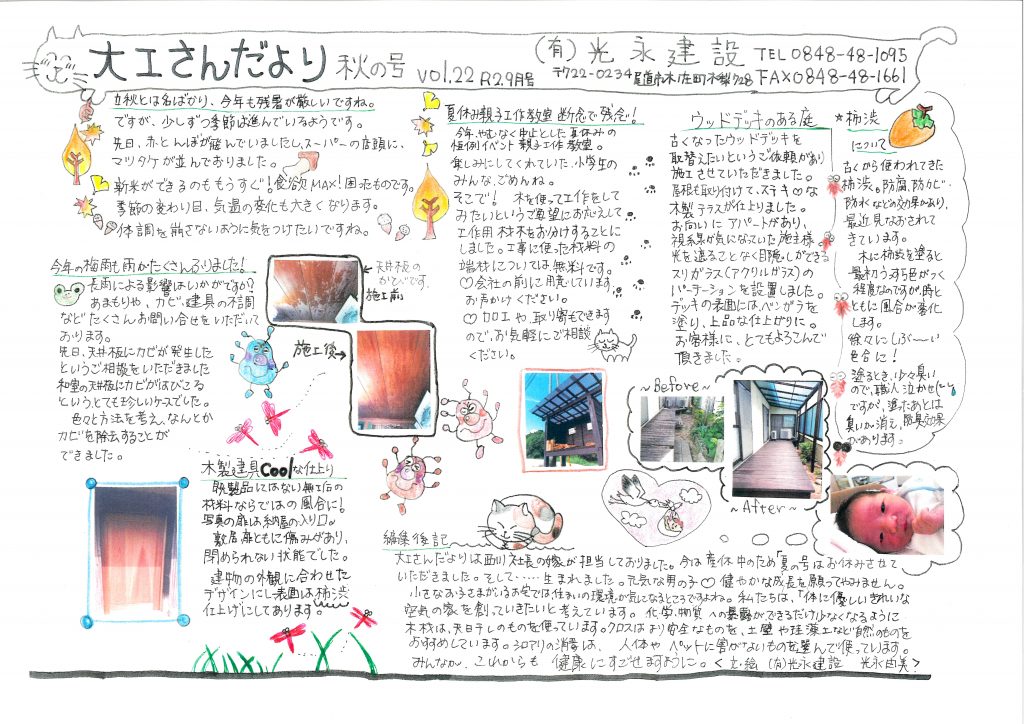 大工さんだより 秋の号 vol.22 R2.9月号
(有)光永建設 TEL 0848-48-1095
〒722-0234 尾道市木ノ庄町木梨928 FAX 0848-48-1661
立秋とは名ばかり、今年も残暑が厳しいですね。
ですが、少しずつ季節は進んでいるようです。
先日、赤とんぼが飛んでいましたし、スーパーの店頭に、
マツタケが並んでおりました。
新米ができるのももうすぐ!食欲MAX!困ったものです。
季節の変わり目、気温の変化も大きくなります。
体調を崩さないように気をつけたいですね。
今年の梅雨も雨がたくさんふりました!
長雨による影響はいかがですか?
あまもりや、カビ、建具の不調
など たくさんお問い合せをいただいて
おります。
先日、天井板にカビが発生した
というご相談をいただきました
和室の天井板にカビがはびこる
というとても珍しいケースでした。
色々と方法を考え、なんとか
カビを除去することが
できました。
←天井板の
カビです。
施工前
施工後→
木製建具Coolな仕上り
既製品にはない無工の
材料ならではの風合に!
写真の扉は納屋の入り口。
敷居、扉ともに傷みがあり、
閉められない状態でした。
建物の外観に合わせた
デザインにし、表面は柿渋
仕上げにしてあります。
夏休み親子工作教室 断念で残念!
今年、やむなく中止とした夏休みの
恒例イベント 親子工作教室。
楽しみにしてくれていた小学生の
みんな、ごめんね。
そこで! 木を使って工作をして
みたいというご要望にお応えして
工作用材木をお分けすることに
しました。工事に使った材料の
端材については無料です。
♡会社の前に用意しています。
お声かけください。
♡加工や、取り寄もできます
ので、お気軽にご相談
ください。
ウッドデッキのある庭
古くなったウッドデッキを
取替えたいというご依頼があり
施工させていただきました。
屋根も取り付けて、ステキ♡な
木製テラスが仕上りました。
お向いにアパートがあり、
視線が気になっていた施主様。
光を遮ることなく目隠しができる
スリガラス(アクリルガラス)の
パーテーションを設置しました。
デッキの表面には、ベンガラを
塗り、上品な仕上がりに。
お客様に、とてもよろこんで
頂きました。
~Before~
~After~
★柿渋
について
古くから使われてきた
柿渋。防腐、防カビ・
防水などの効果があり、
最近見なおされて
きています。
木に柿渋を塗ると
最初うすら色がつく
程度なのですが、時と
ともに風合が変化
します。
徐々にしぶ〜い
色合に!
塗るとき、少々臭い
ので、職人泣かせ
ですが、塗ったあとは
臭いが消え、脱臭効果
があります。
編集後記
大工さんだよりは西川社長の嫁が担当しておりました。今は産休中のため「夏の号」はお休みさせて
いただきました。そして・・・・・生まれました。元気な男の子♡健やかな成長を願ってやみません。
小さなお子さまがいるお宅では、住まいの環境が気になるところですよね。私たちは、「体に優しい、きれいな
空気の家」を創っていきたいと考えています。化学物質への暴露ができるだけ少なくなるように
木材は、天日干しのものを使っています。クロスはより安全なものを、土壁や珪藻土など自然のものを
おすすめしています。シロアリの消毒は、人体やペットに害がないものを選んで使っています。
みんなが、これからも健康にすごせますように。<文・絵 (有)光永建設 光永由美>